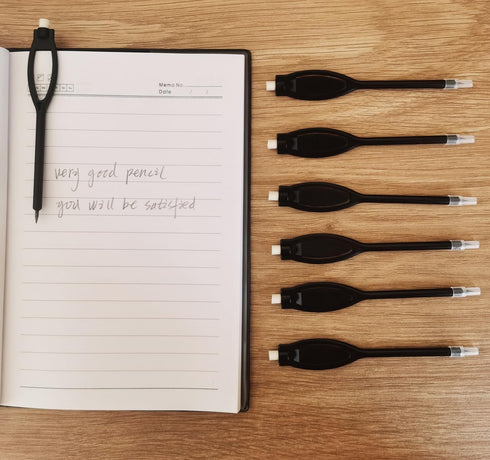 Memo No.
Date / /
very good pencil
you will be satisfied